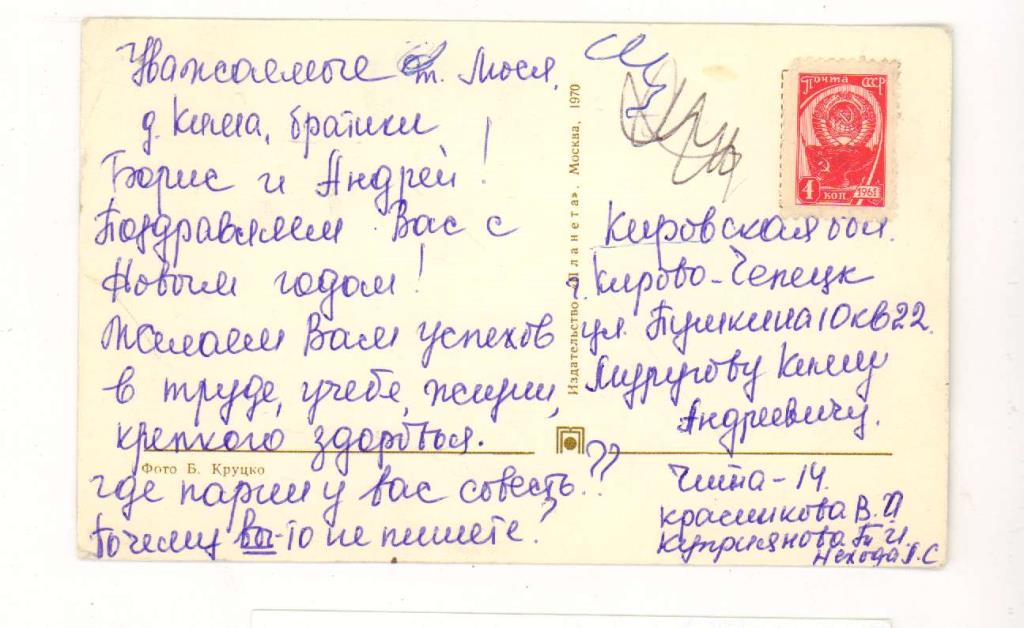 Уважаемые т. Мося,
д. Кима, братики
Борис и Андрей!
Поздравляем Вас с
Новым годом!
Желаем Вам успехов
в труде, учебе, жизни,
крепкого здоровья.
Фото Б. Круцко
где парни у вас совесть??
Почему вы-то не пишете?
Издательство «Планета», Москва, 1970
Почта СССР
4 коп 1961
Кировская обл.
г. Кирово-Чепецк
ул. Пушкина 10 кв 22.
Киму
Андреевичу.
Чита-14.
Красикова В. И
Куприянова Т. И.
Нехода Л. С